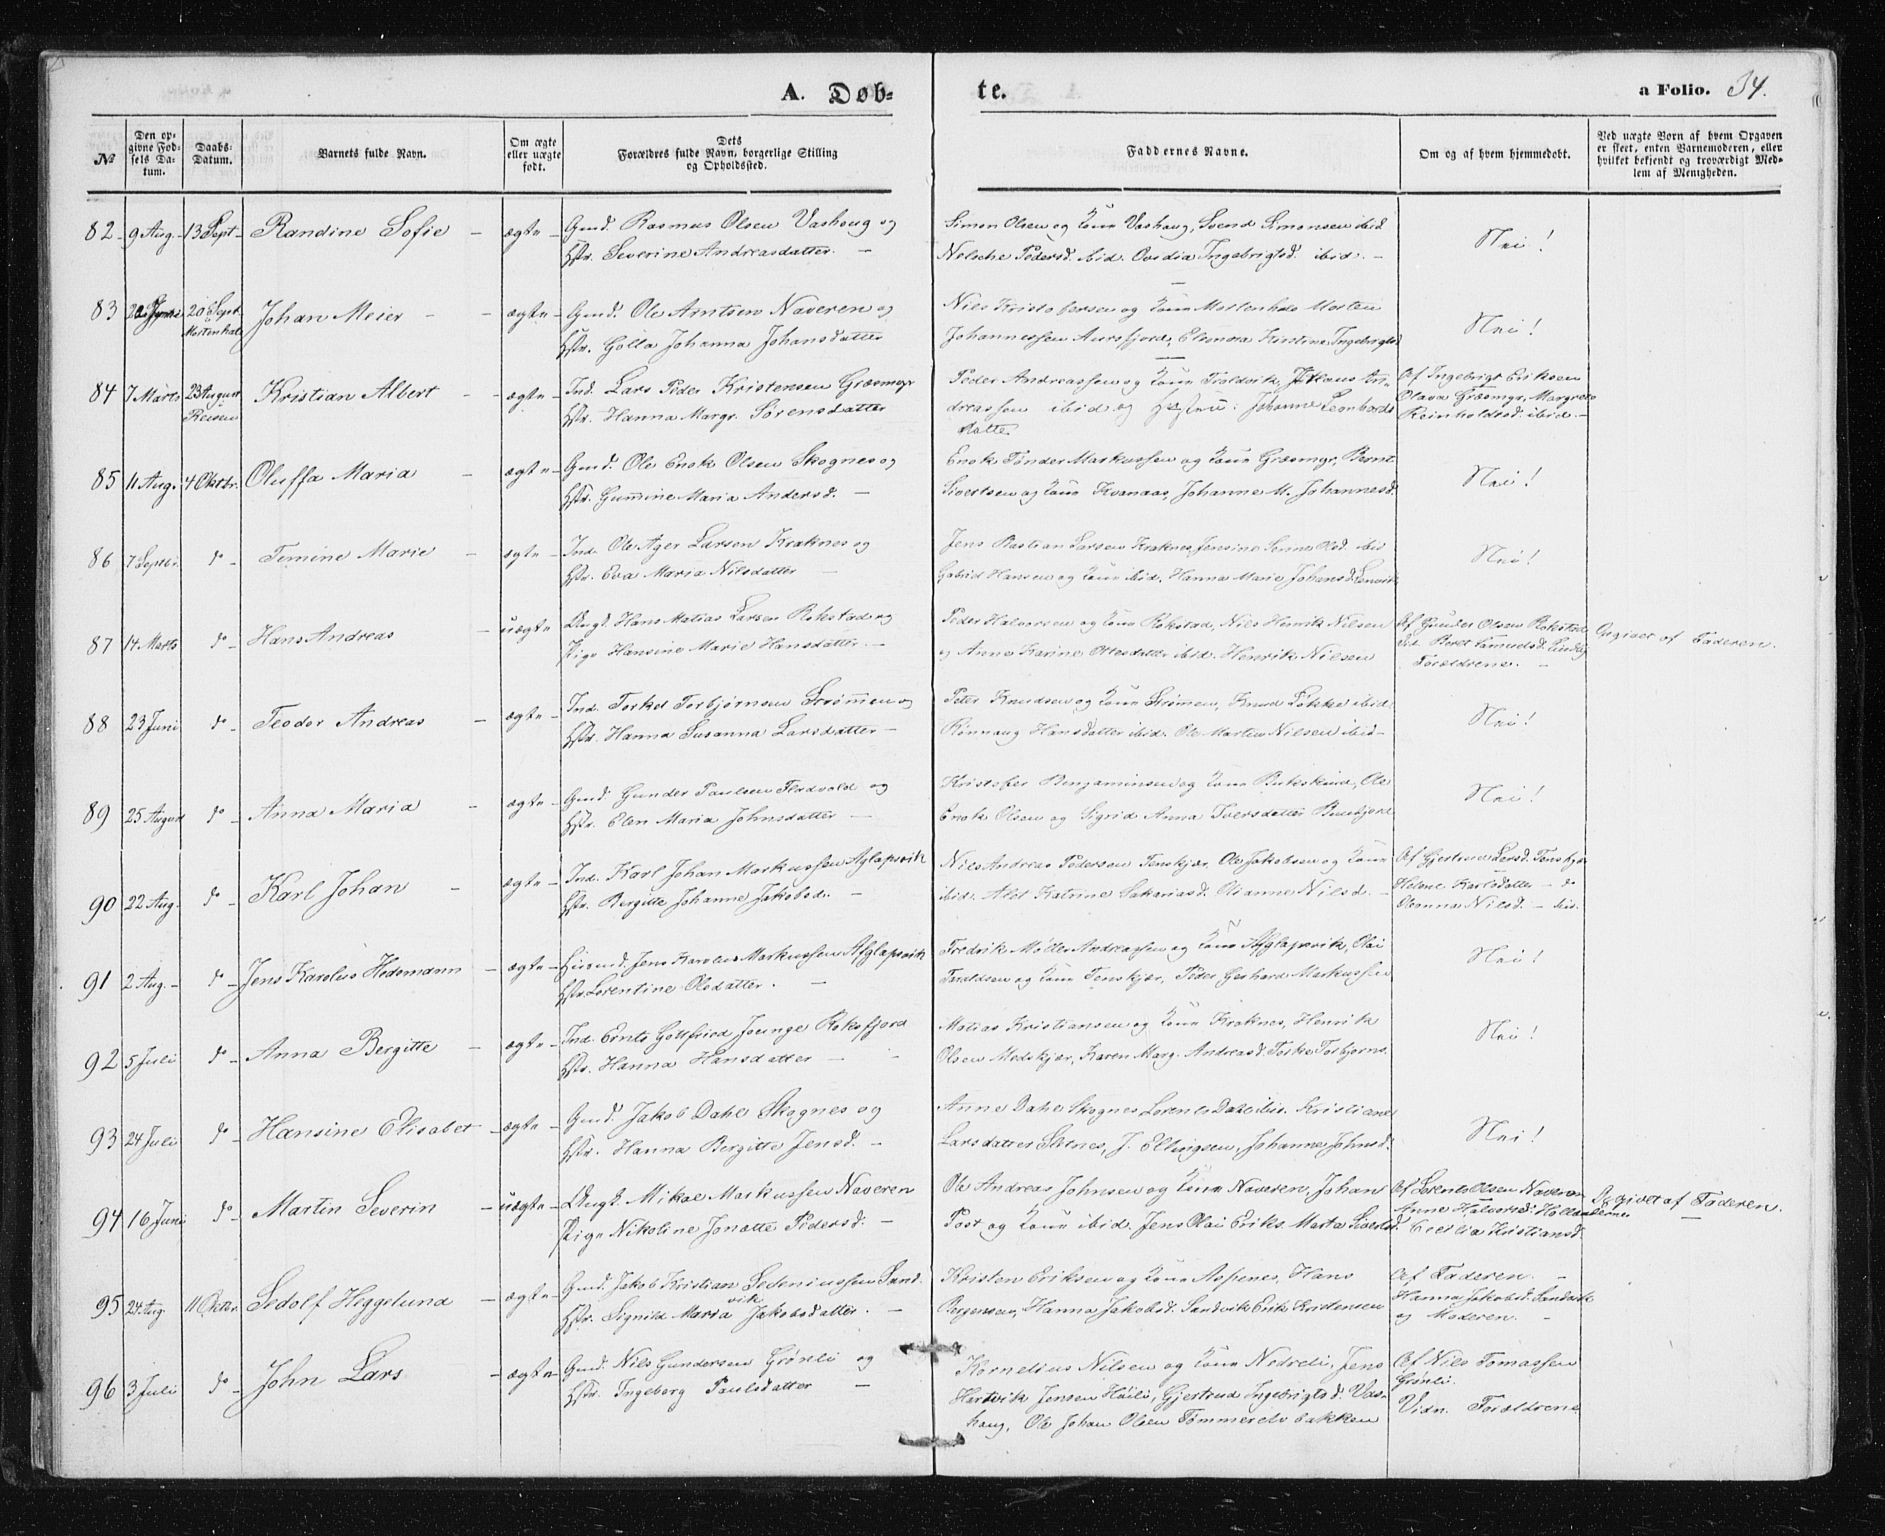 A. Døb-
te.
a Folio. 34.
№
Den op-
givne Fød-
sels Da-
tum.
Daabs-
Datum.
Barnets fulde Navn.
Om ægte
eller uægte
født.
Dets
Forældres fulde Navn, borgerlige Stilling
og Opholdssted.
Faddernes Navne.
Om og af hvem hjemmedøbt.
Ved uægte Børn af hvem Opgaven
er skeet, enten Barnemoderen, eller
hvilket bekjendt og troværdigt Med-
lem af Menigheden.
82 9 Aug. 13 Sept Randine Sofie ægte Gmd. Rasmus Olsen Vashaug og
Hstr. Severine Andreasdatter.
Simon Olsen og Kone Vashaug, Svend Simonsen ibid
Nelsche Pedersd. ibid. Ovidia Ingebrigtsd. ibid.
Nei!
83 20 Sept Johan Meier ægte Gmd. Ole Arntsen Naveren og
Mortenhals
Hstr. Golla Johanna Johansdatter
Nils Kristofersen og Kone Mortenhals Morten
Johannessen Aursfjord, Elenora Kristine Ingebrigtsd
Nei!
84 7 Marts 23 August Kristian Albert ægte Ind. Lars Peder Kristensen Græsmyr
Reisen
Hstr. Hanna Margr. Sørensdatter
Peder Andreassen og Kone Troldvik, Johans An-
dreassen ibid og Johanne Leonhards
datter
Af Ingebrigt Eriksen
Olava Græsmyr, Margrete
Reinholdtsd. ibid.
85 11 Aug. 4 Oktbr. Oluffa Maria ægte Gmd. Ole Enok Olsen Skognes og
Hstr. Gumine Maria Andersd.
Enok Tønder Markussen og Kone Græsmyr, Bernt
Sivertsen og Kone Kvanaas, Johanne M. Johannesd.
Nei!
86 7 Septbr. do Temine Marie ægte Ind. Ole Ager Larsen Kraknes og
Hstr. Eva Maria Nilsdatter
Jens Bastian Larsen Kraknes, Jensine Olsd. ibid
Gabriel Hansen og Kone ibid. Hanna Marie Johansd. Lenvik
Nei!
87 14 Marts do Hans Andreas uægte Ungk. Hans Matias Larsen Rokstad og
Pige Hansine Marie Hansdatter.
Peder Halvorsen og Kone Rokstad, Nils Henrik Nilsen
og Anne Karine Ottesdatter ibid. Henrik Nilsen
Af Gunder Olsen Rokstad
Beret Samuelsd.
Forældrene.
Opgivet af Faderen.
88 23 Juni do Teodor Andreas ægte Ind. Torkel Torbjørnsen Strømmen og
Hstr. Hanna Susanna Larsdatter
Peter Knudsen og Kone Strømen, Knud Løkke ibid.
Rønnaug Hansdatter ibid. Ole Martin Nilsen ibid
Nei!
89 25 August do Anna Maria ægte Gmd. Gunder Paulsen Flodvold og
Hstr. Elen Maria Johnsdatter
Kristofer Benjaminsen og Kone Bukskind, Ole
Enok Olsen og Sigrid Anna Iversdatter
Nei!
90 22 Aug. do Karl Johan ægte Ind. Karl Johan Markussen Aglapsvik
Hstr. Bergitte Johanne Jakobsd.
Nils Andreas Pedersen Tenskjær, Ole Jakobsen og Kone
ibid. Alet Katrine Sakariasd. Olianne Nilsd.
Af Gjertrud Larsd. Tenskjær
Helene Karlsdatter do
Oleanna Nilsd. ibid.
91 2 Aug. do Jens Karolus Hedemann ægte Husmd. Jens Karolus Markussen Afglapsvik
Hstr. Lorentine Olsdatter.
Fredrik Møller Andreassen og Kone Afglapsvik, Olai
og Kone Tenskjær, Peder Gerhard Markussen
Nei!
92 5 Juli do Anna Bergitte ægte Ind. Ernts Gottfried Jounge Roksfjord
Hstr. Hanna Hansdatter
Matias Kristiansen og Kone Kraknes, Henrik
Olsen Medskjær, Karen Marg. Andreasd. Torkel Torbjørns.
Nei!
93 24 Juli do Hansine Elisabet ægte Gmd. Jakob Dahl Skognes og
Hstr. Hanna Bergitte Jensd.
Anne Dahl Skognes, Lorents Dahl ibid. Kristiane
Larsdatter Sletnes, J. Ellingsen, Johanne Johnsd.
Nei!
94 16 Juni do Martin Severin uægte Ungk. Mikal Markussen Naveren
Pige Nikoline Jonette Pedersd.
Ole Andreas Johnsen og Kone Naveren, Johan
Post og Kone ibid. Jens Olai Eriks. Marta Sivertsd.
Af Lorents Olsen Naveren
Anne Halvorsd. Hollenderne
Cecilia Kristiansd.
Opgivet af Faderen.
95 24 Aug. 11 Oktbr. Sedolf Heggelund ægte Gmd. Jakob Kristian Sedeniussen Sand-
vik
Hstr. Signild Maria Jakobsdatter.
Kristen Eriksen og Kone Aspenes, Hans
Hanna Jakobsd. Sandvik Erik Kristensen
Af Faderen.
Hanna Jakobsd. Sandvik
og Moderen.
96 3 Juli do John Lars ægte Gmd. Nils Gundersen Grønli og
Hstr. Ingeborg Paulsdatter
Kornelius Nilsen og Kone Nedreli, Jens
Hartvik Jensen Høili, Gjertrud Ingebrigtsd. Vas-
haug, Ole Johan Olsen Tømmerelvbakken
Af Nils Tomassen
Grønli.
Vidn. Forældrene